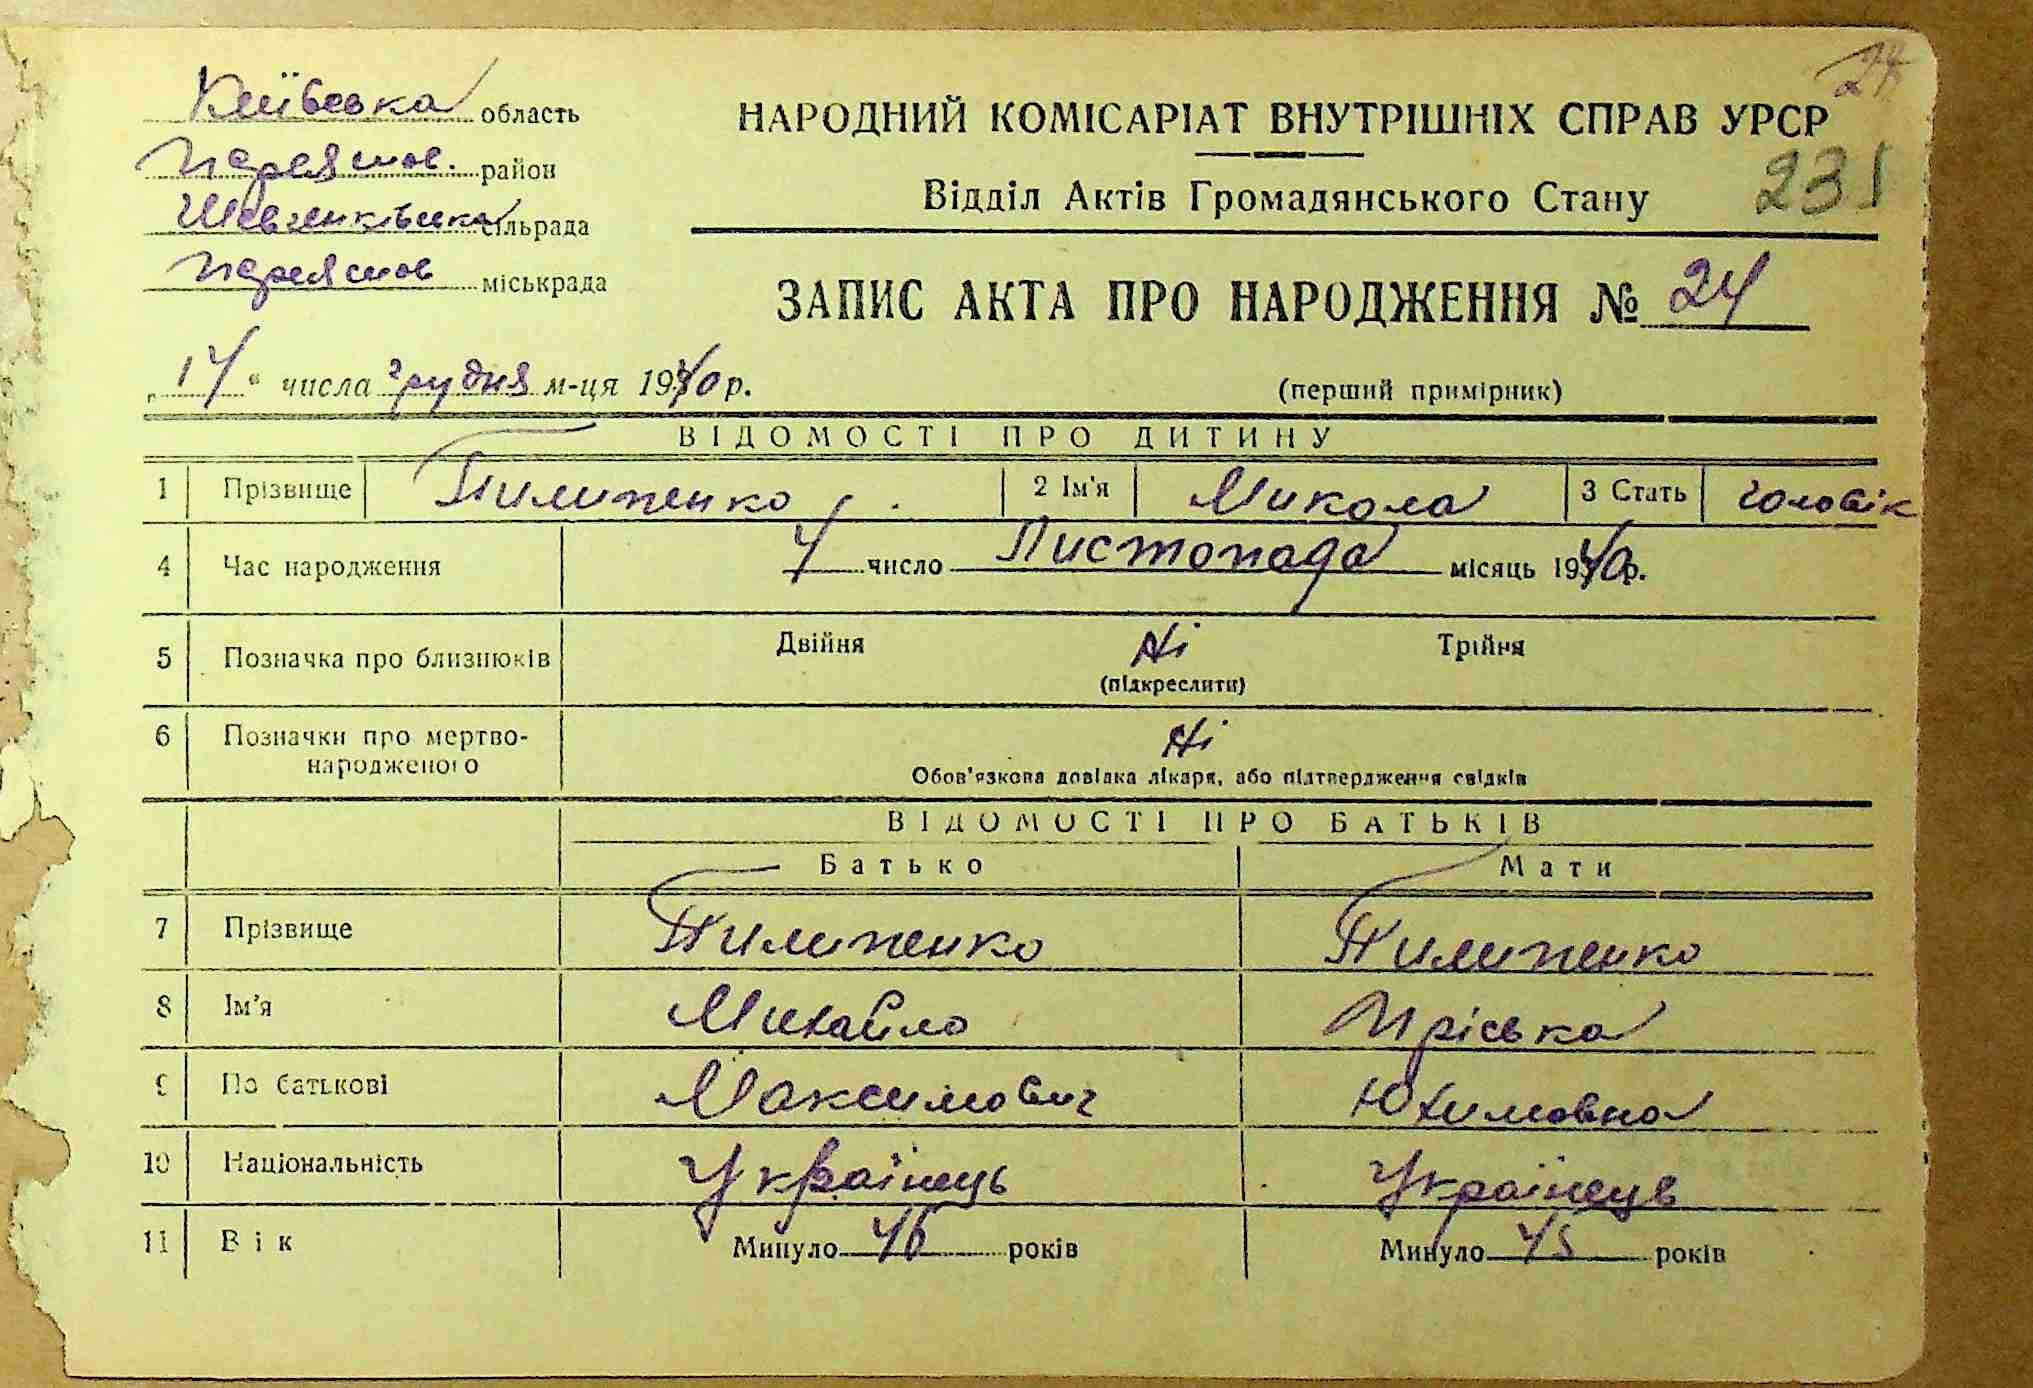 24
Київська область
НАРОДНИЙ КОМІСАРІАТ ВНУТРІШНІХ СПРАВ УРСР
Переяслов. район
231
Відділ Актів Громадянського Стану
Шевченківська сільрада
Переяслов міськрада
ЗАПИС АКТА ПРО НАРОДЖЕННЯ № 24
„14“ числа грудня м-ця 1940 р.
(перший примірник)
ВІДОМОСТІ ПРО ДИТИНУ
1 Прізвище Пилипенко 2 Ім'я Микола 3 Стать чоловік
4 Час народження 4 число Листопада місяць 1940 р.
5 Позначка про близнюків Двійня Ні Трійня
(підкреслити)
6 Позначки про мертво-
народженого Ні
Обов'язкова довідка лікаря, або підтвердження свідків
ВІДОМОСТІ ПРО БАТЬКІВ
Батько Мати
7 Прізвище Пилипенко Пилипенко
8 Ім'я Михайло Пріська
9 По батькові Максимович Юхимовна
10 Національність Українець Українець
11 Вік Минуло 46 років Минуло 45 років